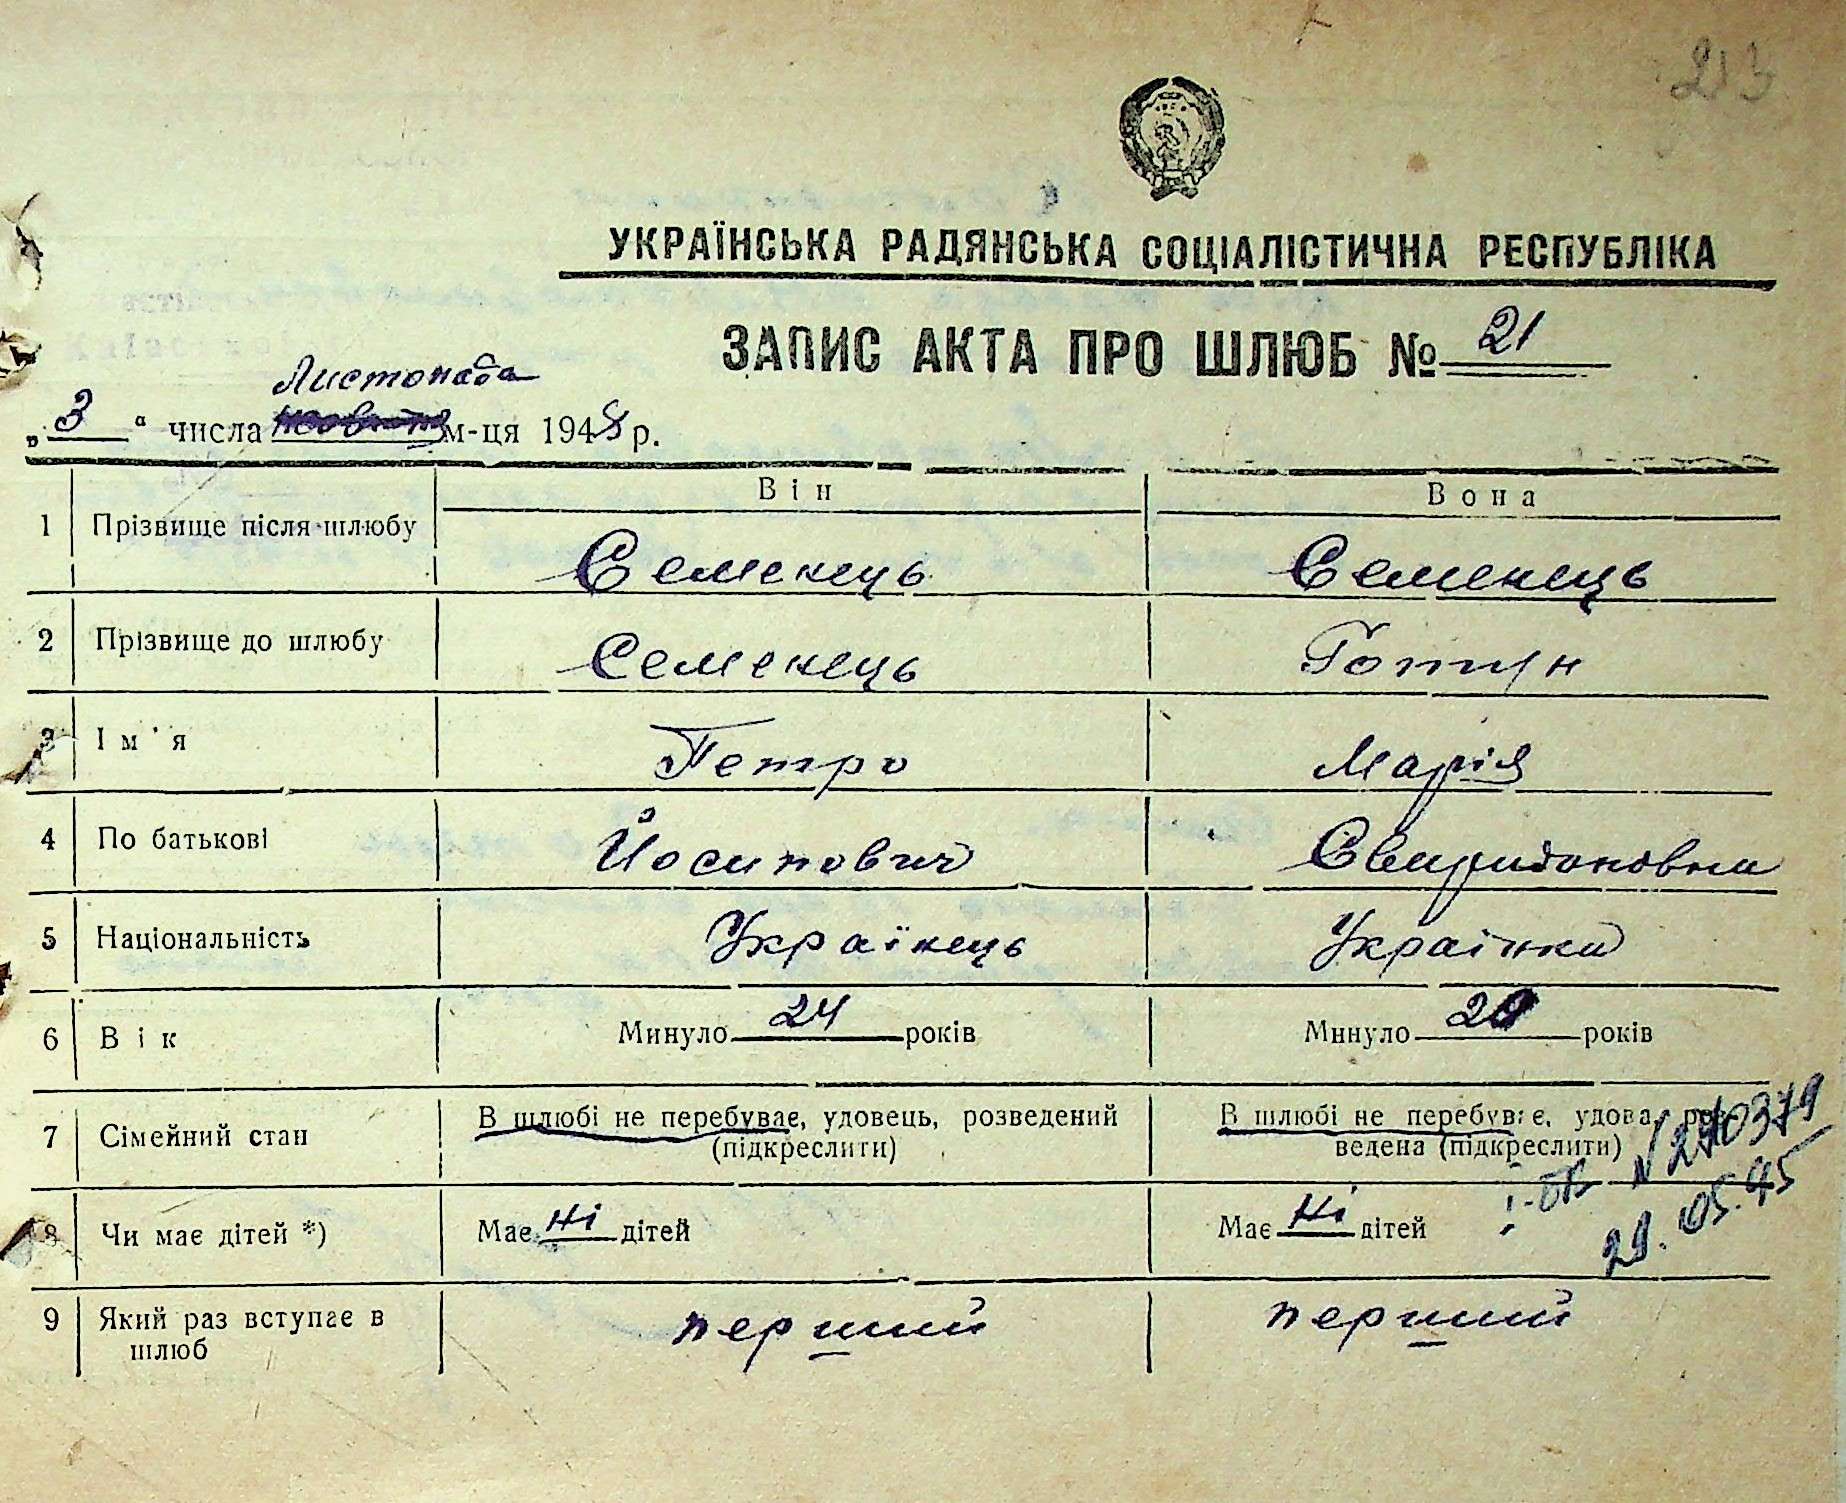 213
УКРАЇНСЬКА РАДЯНСЬКА СОЦІАЛІСТИЧНА РЕСПУБЛІКА
ЗАПИС АКТА ПРО ШЛЮБ № 21
Листопада
„3“ числа м-ця 1948 р.
Він Вона
1 Прізвище після шлюбу Семенець Семенець
2 Прізвище до шлюбу Семенець
3 Ім'я Петро Марія
4 По батькові Йосипович Свиридоновна
5 Національність Українець Українка
6 Вік Минуло 24 років Минуло 20 років
7 Сімейний стан В шлюбі не перебуває, удовець, розведений В шлюбі не перебуває, удова, роз-
(підкреслити) ведена (підкреслити)
№ 270379
8 Чи має дітей *) Має ні дітей Має Ні дітей
29.05.95
9 Який раз вступає в перший перший
шлюб